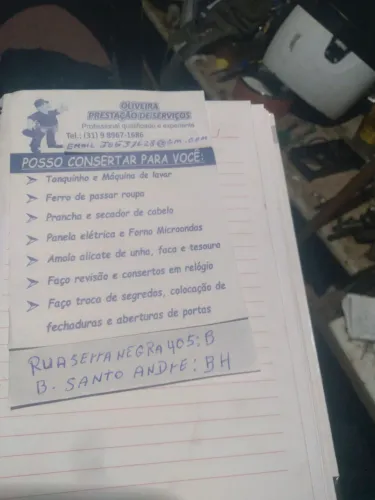 OLIVEIRA
PRESTAÇÃO DE SERVIÇOS
Profissional qualificado e experiente
Tel.: (31) 9 8967-1686
EMAIL
POSSO CONSERTAR PARA VOCÊ:
Tanquinho e Máquina de lavar
Ferro de passar roupa
Prancha e secador de cabelo
Panela elétrica e Forno Microondas
Amolo alicate de unha, faca e tesoura
Faço revisão e consertos em relógio
Faço troca de segredos, colocação de
fechaduras e aberturas de portas
RUA SERRA NEGRA 405: B
B. SANTO ANDRE: BH